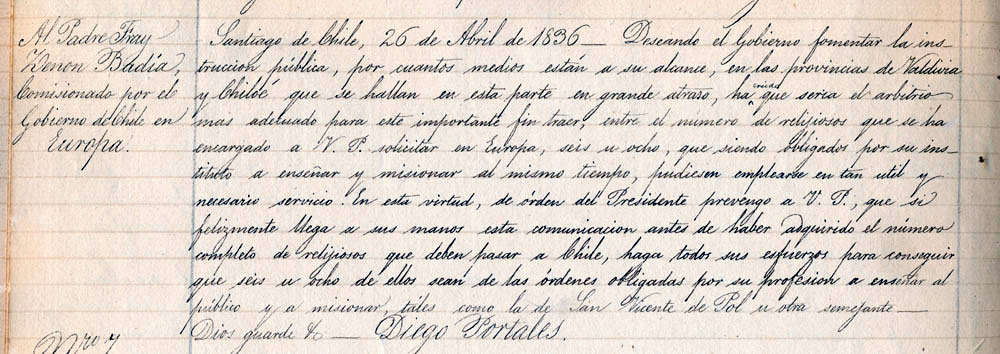 Al Padre Fray
Zenon Badía,
Comisionado por el
Gobierno de Chile en
Europa.
Santiago de Chile, 26 de Abril de 1836 — Deseando el Gobierno fomentar la ins-
truccion pública, por cuantos medios están a su alcance, en las provincias de Valdivia
y Chiloé que se hallan en esta parte en grande atraso, ha creido que seria el arbitrio
mas adecuado para este importante fin traer, entre el número de relijiosos que se ha
encargado a V. P. solicitar en Europa, seis u ocho, que siendo obligados por su ins-
tituto a enseñar y misionar al mismo tiempo, pudiesen emplearse en tan util y
necesario servicio. En esta virtud, de órden del Presidente prevengo a V. P., que si
felizmente llega a sus manos esta comunicacion antes de haber adquirido el número
completo de relijiosos que deben pasar a Chile, haga todos sus esfuerzos para conseguir
que seis u ocho de ellos sean de las órdenes obligadas por su profesion a enseñar al
público y a misionar, tales como la de San Vicente de Pol u otra semejante —
Dios guarde &. — Diego Portales.
Nro 7